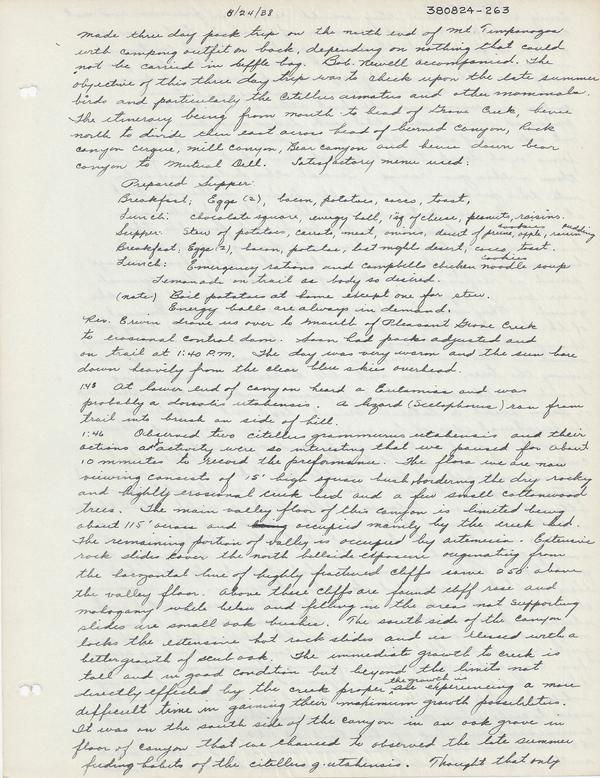 8/24/38
380824-263
made three day pack trip on the north end of Mt. Timpanogos
with camping outfit on back, depending on nothing that could
not be carried in duffle bag. Bob Newell accompanied. The
objective of this three day trip was to check upon the late summer
birds and particularly the Citellus armatus and other mammals.
The itinerary being from mouth to head of Grove Creek, hence
north to divide then east across head of burned canyon, Rock
canyon cirque, mill canyon, Bear canyon and hence down bear
canyon to Mutual Dell. Satisfactory menu used:
Prepared Supper:
Breakfast; Eggs (2), bacon, potatoes, cocoa, toast,
Lunch: chocolate square, energy ball, of cheese, peanuts, raisins.
Supper: Stew of potatoes, carrots, meat, onions, desert of prune, apple, raisin pudding cookies
Breakfast; Eggs (2), bacon, potatoes, last night desert, cocoa, toast.
Lunch: Emergency rations and campbells chicken noodle soup cookies
Lemonade on trail as body so desired.
(note) Boil potatoes at home except one for stew.
Energy balls are always in demand.
Rev. Erwin drove us over to mouth of Pleasant Grove Creek
to erosional control dam. Soon had packs adjusted and
on trail at 1:40 P.M. The day was very warm and the sun bore
down heavily from the clear blue skies overhead.
1:43 At lower end of canyon heard a Eutamias and was
probably a dorsalis utahensis. A lizard (Sceloporus) ran from
trail into brush on side of hill.
1:46 Observed two citellus grammurus utahensis and their
actions activity were so interesting that we paused for about
10 minutes to record the preformance. The flora we are now
viewing consists of 15' high square bush bordering the dry rocky
and highly erosional creek bed and a few small cottonwood
trees. The main valley floor of this canyon is limited being
about 115' across and occupied mainly by the creek bed.
The remaining portion of valley is occupied by artemesia. Extensive
rock slides cover the north hillside exposure originating from
the horizontal line of highly fractured cliffs some 250' above
the valley floor. Above these cliffs are found cliff rose and
mahogany while below and filling in the areas not supporting
slides are small oak bushes. The south side of the canyon
lacks the extensive hot rock slides and is blessed with a
better growth of scrub oak. The immediate growth to creek is
tall and in good condition but beyond the limits not
directly effected by the creek proper, the growth is experiencing a more
difficult time in gaining their maximum growth possibilities.
It was on the south side of the canyon in an oak grove in
floor of canyon that we chanced to observed the late summer
feeding habits of the citellus g. utahensis. Thought that only